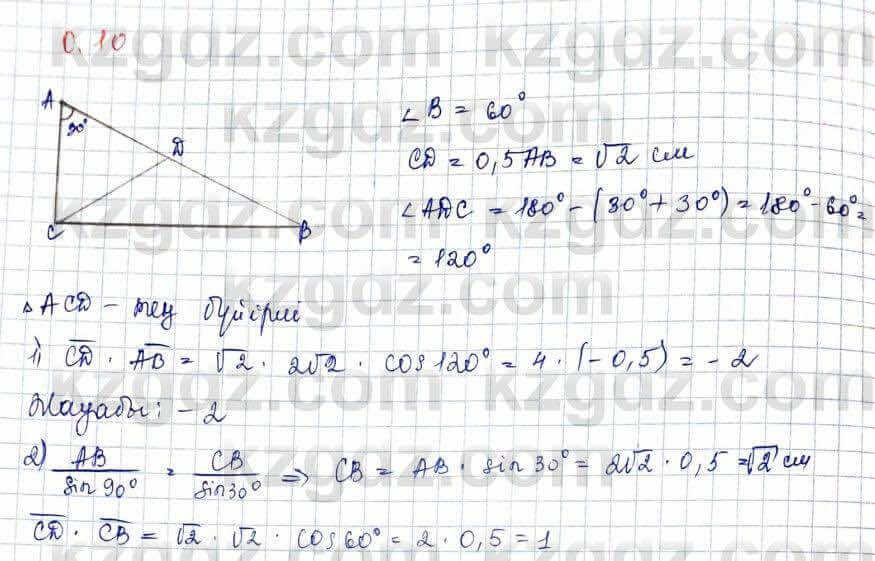 0.10
A
30°
D
C
B
∠B = 60°
CD = 0,5AB = √2 см
∠ADC = 180° - (30° + 30°) = 180° - 60° =
= 120°
△ACD - тең бүйірлі
1) CD · AB = √2 · 2√2 · cos120° = 4 · (-0,5) = -2
Жауабы: -2
2) AB/sin90° = CB/sin30° => CB = AB · sin30° = 2√2 · 0,5 = √2 см
CD · CB = √2 · √2 · cos60° = 2 · 0,5 = 1
kzgdz.com